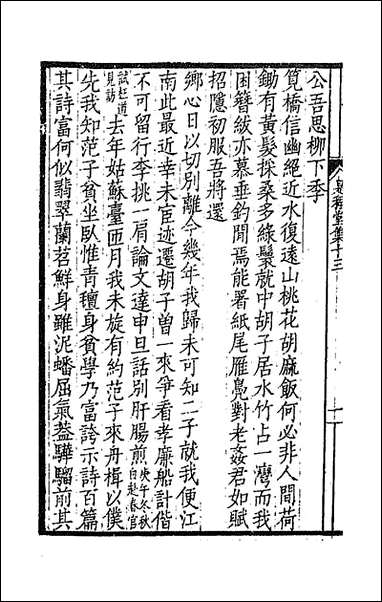 公吾思柳下季
筧橋信幽絕近水復遠山桃花胡麻飯何必非人間荷
鋤有黃髮採桑多綠鬟就中胡子居水竹占一灣而我
困簪紱亦慕垂釣閒焉能署紙尾雁鳧對老姦君如賦
招隱初服吾將還
鄉心日以切別離今幾年我歸未可知二子就我便江
南此最近幸未臣迹遷胡子曾一來爭看孝廉船計偕
不可留行李挑一肩論文達申旦話別肝腸煎庚午冬秋白赴春官
試枉道見訪去年姑蘇臺匝月我未旋有約范子來舟楫以僕
先我知范子貧坐臥惟青氊身貧學乃富誇示詩百篇
其詩富何似翡翠蘭苕鮮身雖泥蟠屈氣葢驊騮前其
集十三